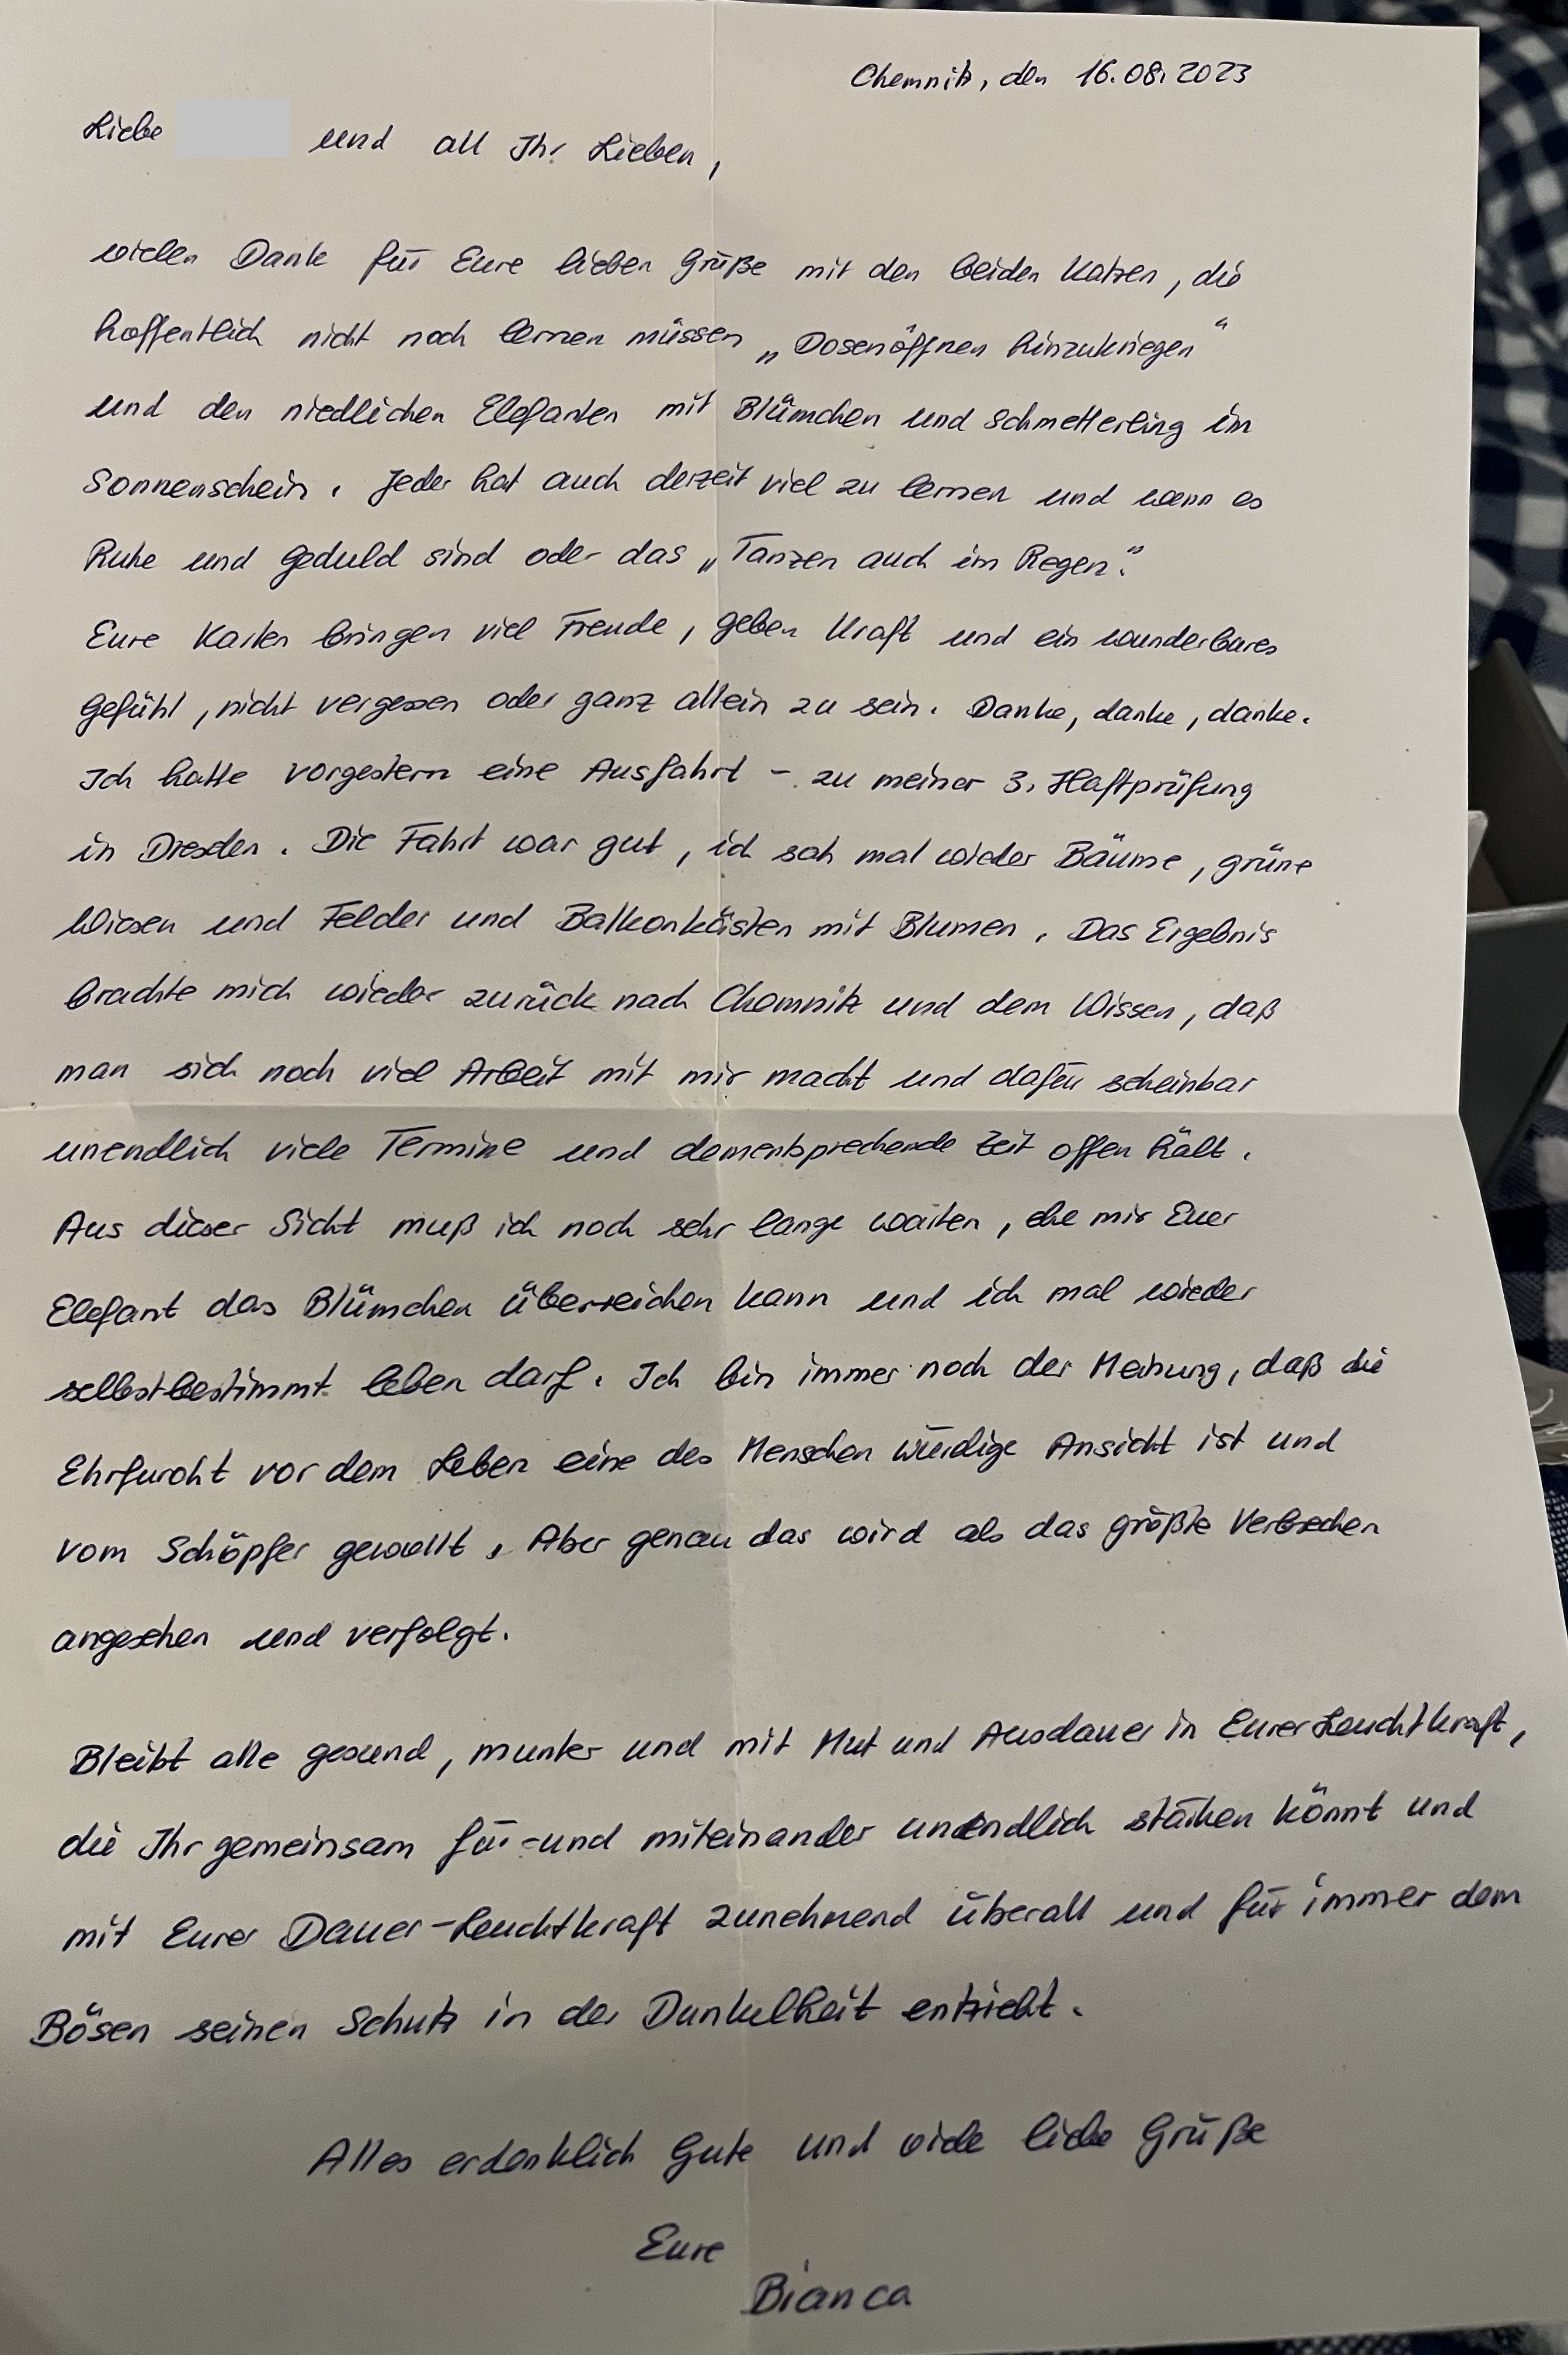 Chemnitz, den 16.08.2023
Liebe und all Ihr Lieben,
vielen Dank für Eure lieben Grüße mit den beiden Katzen, die
hoffentlich nicht noch lernen müssen „Dosenöffnen hinzukriegen“
und den niedlichen Elefanten mit Blümchen und Schmetterling im
Sonnenschein. Jeder hat auch derzeit viel zu lernen und wenn es
Ruhe und Geduld sind oder das „Tanzen auch im Regen“.
Eure Karten bringen viel Freude, geben Kraft und ein wunderbares
Gefühl, nicht vergessen oder ganz allein zu sein. Danke, danke, danke.
Ich hatte vorgestern eine Ausfahrt – zu meiner 3. Haftprüfung
in Dresden. Die Fahrt war gut, ich sah mal wieder Bäume, grüne
Wiesen und Felder und Balkonkästen mit Blumen. Das Ergebnis
brachte mich wieder zurück nach Chemnitz und dem Wissen, daß
man sich noch viel Arbeit mit mir macht und dafür scheinbar
unendlich viele Termine und dementsprechende Zeit offen hält.
Aus dieser Sicht muß ich noch sehr lange warten, ehe mir Euer
Elefant das Blümchen überreichen kann und ich mal wieder
selbstbestimmt leben darf. Ich bin immer noch der Meinung, daß die
Ehrfurcht vor dem Leben eine des Menschen würdige Ansicht ist und
vom Schöpfer gewollt. Aber genau das wird als das größte Verbrechen
angesehen und verfolgt.
Bleibt alle gesund, munter und mit Mut und Ausdauer in Eurer Leuchtkraft,
die Ihr gemeinsam für- und miteinander unendlich stärken könnt und
mit Eurer Dauer-Leuchtkraft zunehmend überall und für immer dem
Bösen seinen Schutz in der Dunkelheit entzieht.
Alles erdenklich Gute und viele liebe Grüße
Eure
Bianca